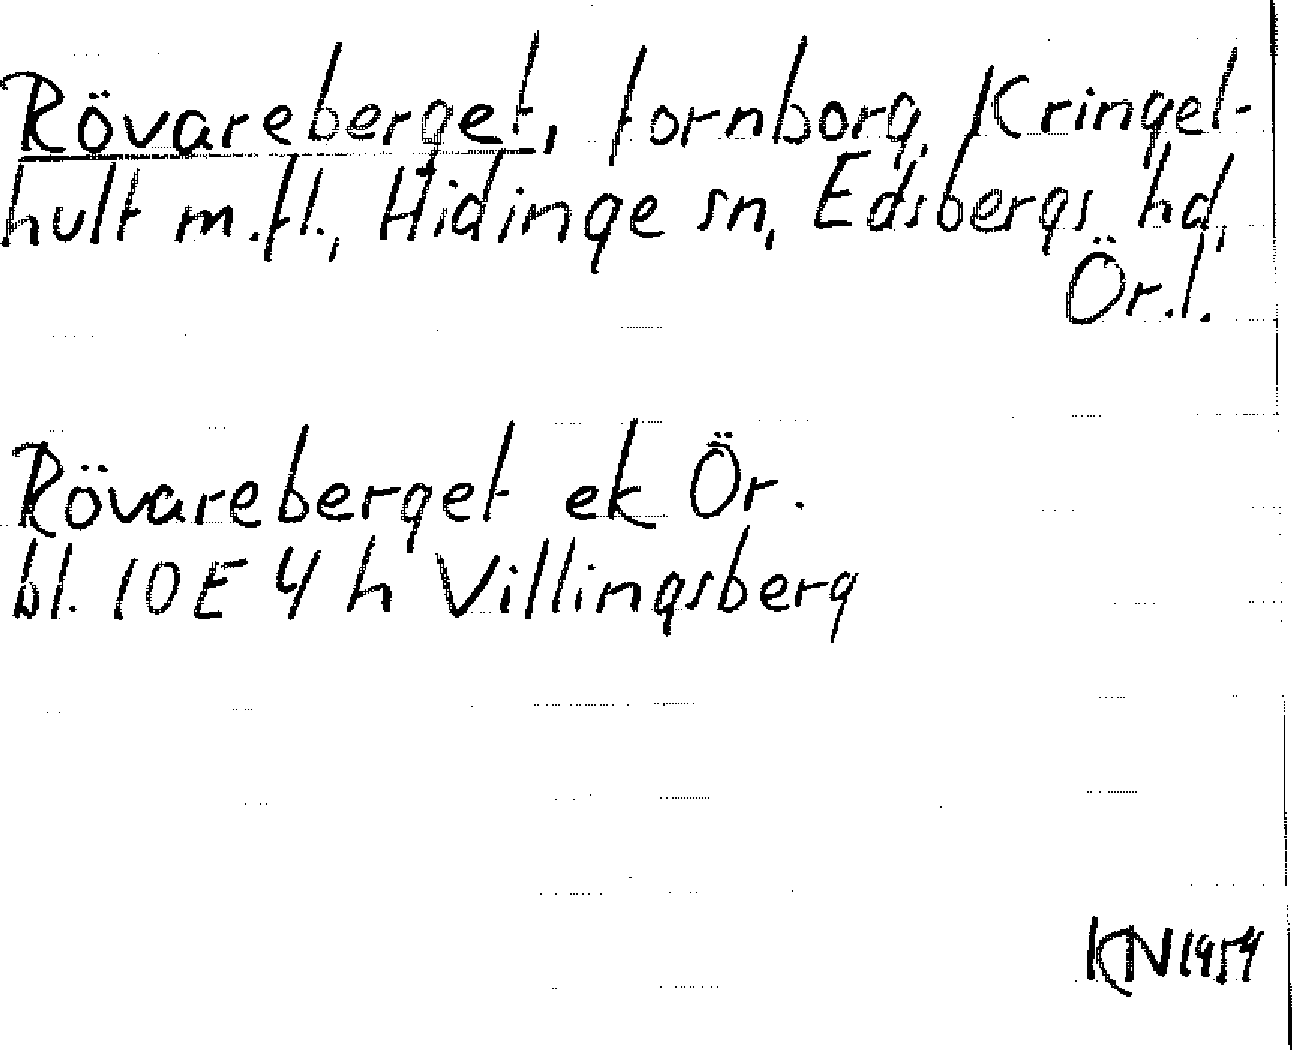 Rövareberget, fornborg, Kringel-
hult m.fl., Hidinge sn, Edsbergs hd,
Ör.l.
Rövareberget ek Ör.
bl. 10E 4 h Villingsberg
KN 1954